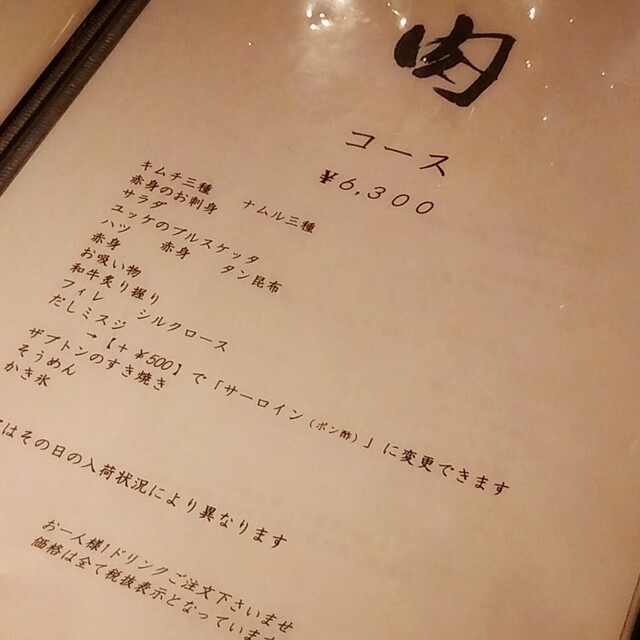 肉
コース
¥6,300
キムチ三種 ナムル三種
赤身のお刺身
サラダ
ユッケのブルスケッタ
ハツ 赤身 タン昆布
赤身
お吸い物
和牛炙り握り
フィレ シルクロース
だしミスジ
→【+¥500】で「サーロイン（ポン酢）」に変更できます
ザブトンのすき焼き
そうめん
かき氷
はその日の入荷状況により異なります
お一人様1ドリンクご注文下さいませ
価格は全て税抜表示となっています